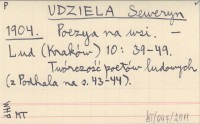 P
UDZIELA Seweryn
1904. Poezya na wsi. —
Lud (Kraków) 10: 39-49.
Twórczość poetów ludowych
(z Podhala na s. 43-44).
MT